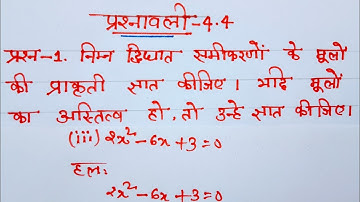 प्रश्नावली-4.4
प्रश्न-1. निम्न द्विघात समीकरणों के मूलों
की प्राकृती सात कीजिए। यदि मूलों
का अस्तित्व हो, तो उन्हे सात कीजिए।
(iii) 2x²-6x+3=0
हल:
2x²-6x+3=0